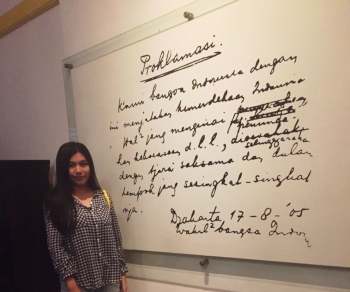 Proklamasi.
Kami bangsa Indonesia dengan
ini menjatakan kemerdekaan Indonesia
Hal2 jang mengenai
han kekoeasaan d.l.l., diselenggarakan
dengan tjara saksama dan dalam
tempoh jang sesingkat-singkat
nja.
Djakarta 17 - 8 - '05
wakil2 bangsa Indon